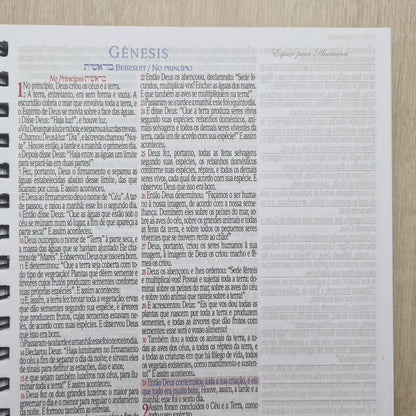 GÊNESIS
בראשית BERESHIT / NO PRINCÍPIO
Espaço para Anotações
No Princípio בראשית
1 No princípio, Deus criou os céus e a terra.
2 A terra, entretanto, era sem forma e vazia. A
escuridão cobria o mar que envolvia toda a terra, e
o Espírito de Deus se movia sobre a face das águas.
3 Disse Deus: "Haja luz!", e houve luz.
4 Viu Deus que a luz era boa; e separou a luz das trevas.
5 Chamou Deus à luz "Dia", e às trevas chamou "Noi-
te". Houve então, a tarde e a manhã: o primeiro dia.
6 Depois disse Deus: "Haja entre as águas um limite
para separá-las em duas partes!"
7 Fez, portanto, Deus o firmamento e separou as
águas estabelecidas abaixo desse limite, das que
ficaram por cima. E assim aconteceu.
8 Ao firmamento deu o nome de "Céu". A tar-
de passou, e raiou a manhã: esse foi o segundo dia.
9 Então disse Deus: "Que as águas que estão sob o
céu se reúnam num só lugar, a fim de que apareça a
parte seca!" E assim aconteceu.
10 Deus outorgou o nome de "Terra" à parte seca, e
a massa das águas que se haviam ajuntado Ele cha-
mou de "Mares". E observou Deus que isso era bom.
11 E determinou: "Que a terra seja coberta com to-
do tipo de vegetação! Plantas que dêem semente e
árvores cujos frutos produzam sementes de acordo
com as suas espécies". E assim aconteceu.
12 E, assim, a terra fez brotar toda a vegetação: ervas
que dão sementes segundo a sua espécie, e árvores
que produzem frutos, cujas sementes estavam ne-
les, de acordo com suas espécies. E observou Deus
que isso era bom.
14 Declarou Deus: "Haja luminares no firmamento
do céu, para separar o dia da noite; e sirvam eles
de sinais para definição de estações, dias e anos;
15 e que sejam também luzeiros nos céus, para ilu-
minar toda a terra!" E assim aconteceu.
para governar o dia e o menor para reger o andamen-
to da noite. E formou também as estrelas.
22 Então Deus os abençoou, declarando: "Sede fe-
cundos, multiplicai-vos! Enchei as águas dos mares.
E que também as aves se multipliquem na terra!"
23 Passaram-se a tarde e a manhã; esse foi o quinto dia.
24 E disse Deus: "Que a terra produza seres vivos
segundo suas espécies: rebanhos domésticos, ani-
mais selvagens e todos os demais seres viventes da
terra, cada um de acordo com sua espécie!" E assim
aconteceu.
25 Deus fez, portanto, todas as feras selvagens
segundo suas espécies, os rebanhos domésticos
conforme suas espécies, répteis, e todos os demais
seres vivos, cada qual de acordo com sua espécie. E
observou Deus que isso era bom.
26 Então Deus determinou: "Façamos o ser huma-
no à nossa imagem, de acordo com a nossa seme-
lhança. Dominem eles sobre os peixes do mar, so-
bre as aves do céu, sobre os grandes animais e todas
as feras da terra, e sobre todos os pequenos seres
viventes que se movem rente ao chão!"
27 Deus, portanto, criou os seres humanos à sua
imagem, à imagem de Deus os criou: macho e fê-
mea os criou.
28 Deus os abençoou e lhes ordenou: "Sede férteis
e multiplicai-vos! Povoai e sujeitai toda a terra; do-
minai sobre os peixes do mar, sobre as aves do céu
e sobre todo animal que rasteja sobre a terra!"
29 E acrescentou Deus: "Eis que vos dou todas as
plantas que nascem por toda a terra e produzem
sementes, e todas as árvores que dão frutos com
sementes: esse será o vosso alimento!
30 Também dou a todos os animais da terra, a to-
das as aves dos céus, a todos os répteis da terra, e
a todas as criaturas em que há fôlego de vida, todos
os vegetais existentes, como mantimento e susten-
to!" E assim aconteceu.
31 Então Deus contemplou toda a sua criação, e eis
que tudo era muito bom. Houve, assim, a tarde e a
manhã: esse foi o sexto dia.
2 Assim foram concluídos o Céu e a Terra, como